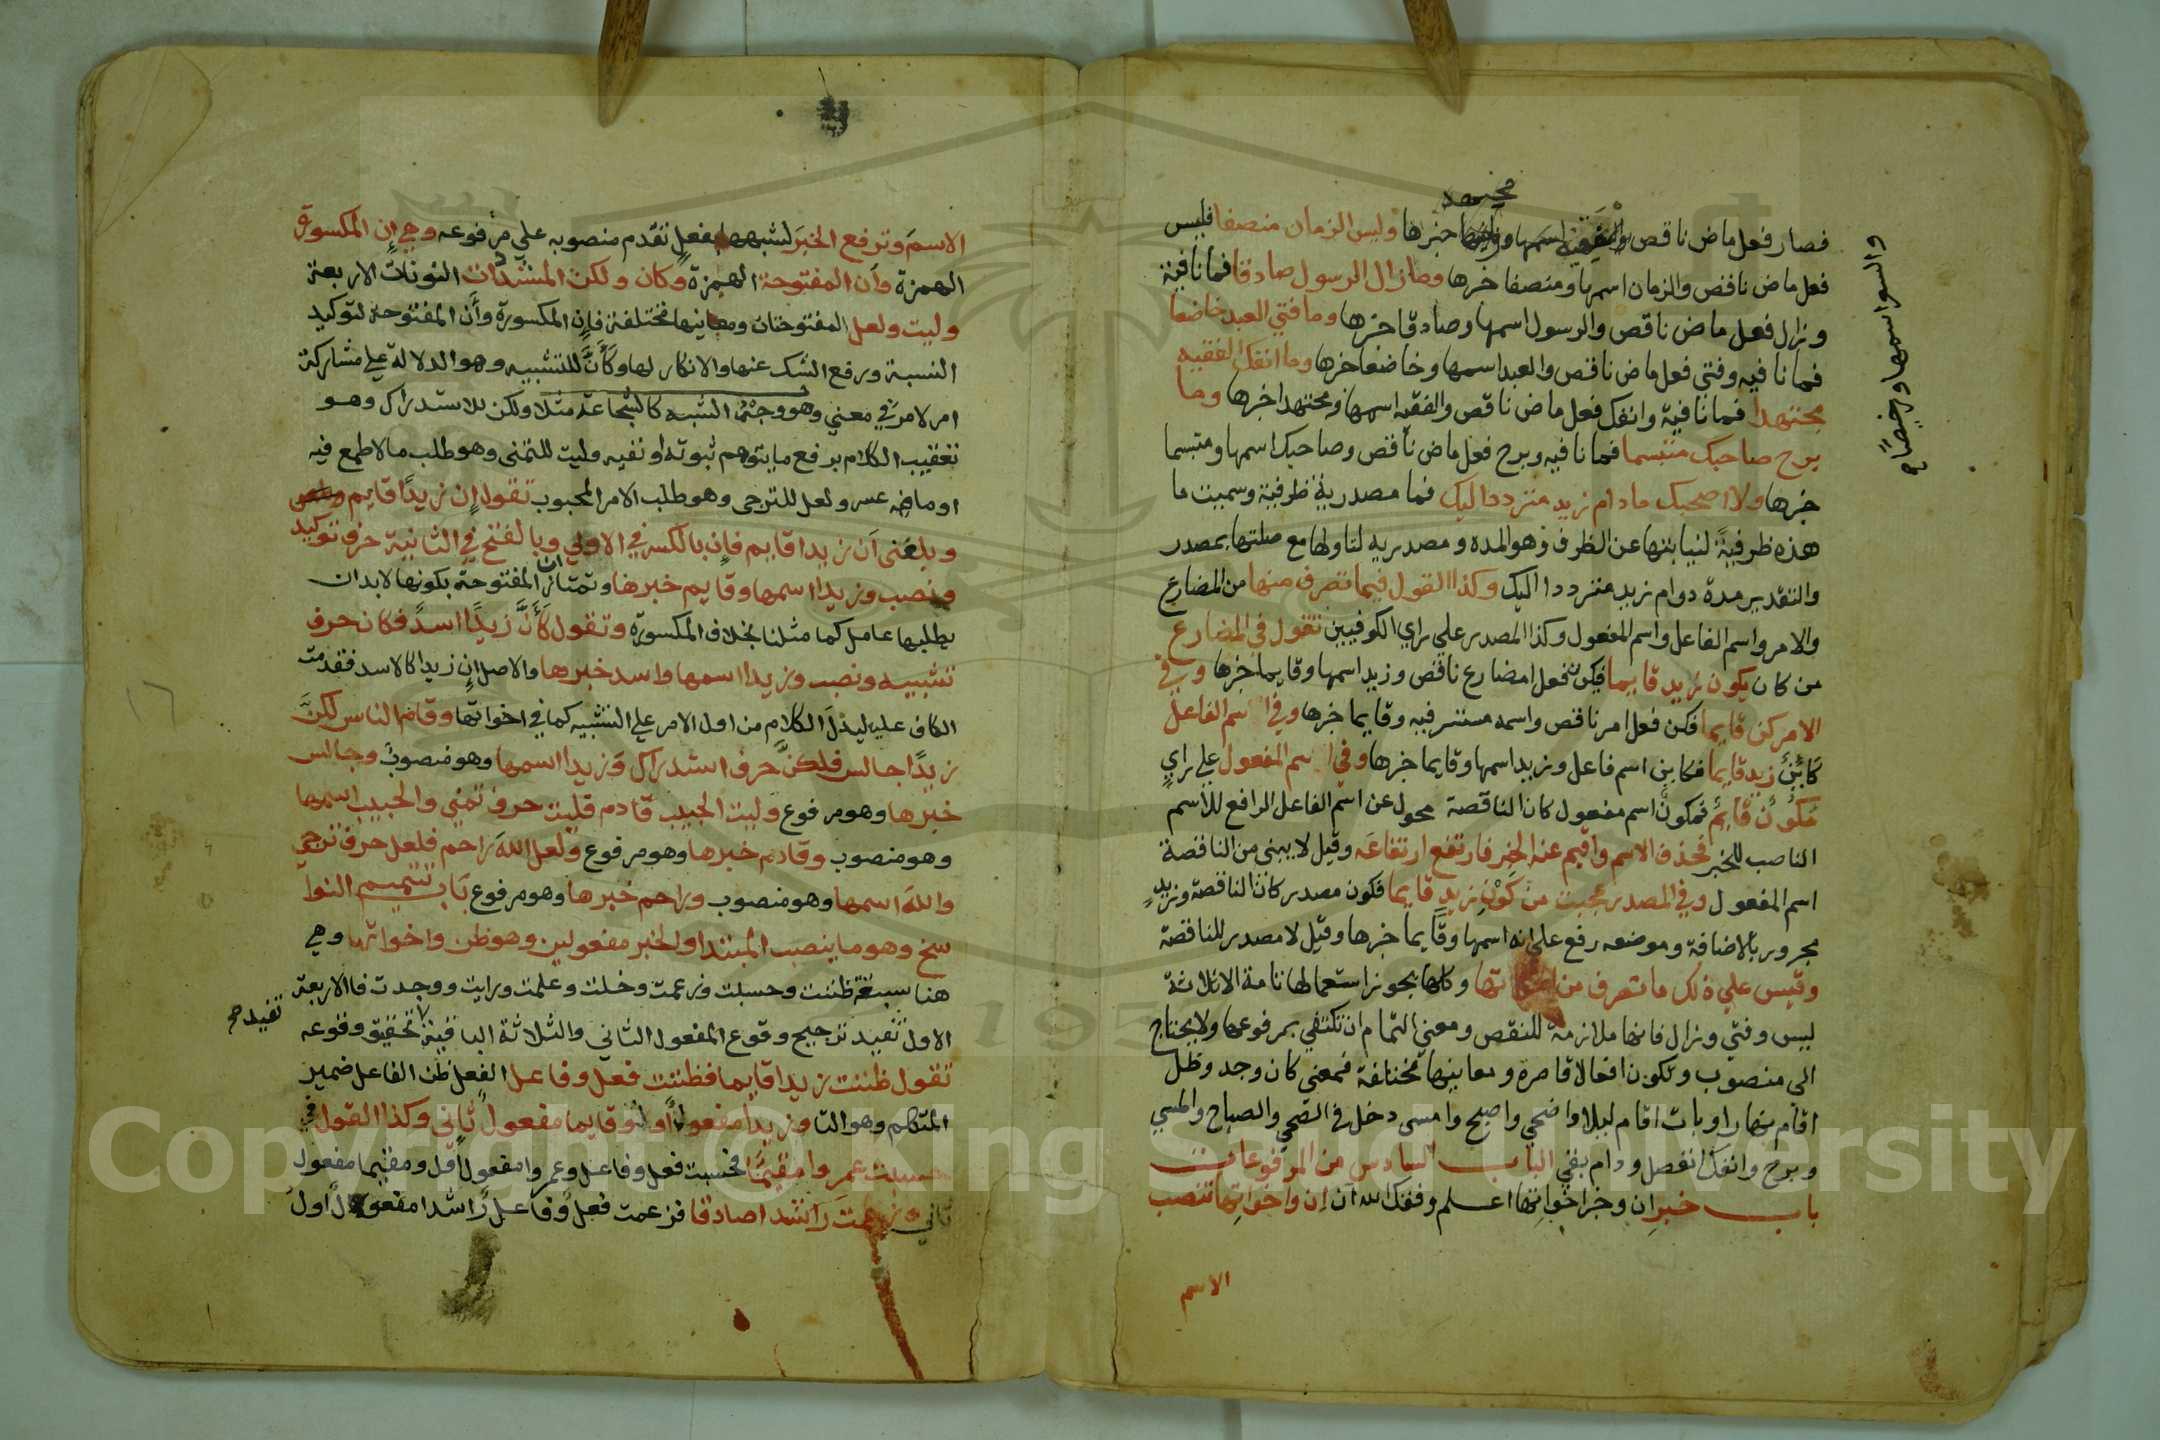 فصار فعل ماض ناقص اسمها خبرها وليس الزمان منصفا فليس
والسوا اسمها ورخيصا
فعل ماض ناقص والزمان اسمها ومنصفا خبرها وما زال الرسول صادقا فما نافية
وزال فعل ماض ناقص والرسول اسمها وصادقا خبرها وما فتي العبد خاضعا
فما نافيه وفتي فعل ماض ناقص والعبد اسمها وخاضعا خبرها وما انفك الفقيه
مجتهدا فما نافية وانفك فعل ماض ناقص والفقيه اسمها ومجتهدا خبرها وما
برح صاحبك متبسما فما نافيه وبرح فعل ماض ناقص وصاحبك اسمها ومتبسما
خبرها ولا اصحبك مادام زيد مترددا اليك فما مصدرية ظرفية وسميت ما
هذه ظرفية لنيابتها عن الظرف وهو المده ومصدريه لتاولها مع صلتها بمصدر
والتقدير مدة دوام زيد مترددا اليك وكذا القول فيما تصرف منها من المضارع
والامر واسم الفاعل واسم المفعول وكذا المصدر على راي الكوفيين تقول في المضارع
من كان يكون زيد قايما فيكون فعل مضارع ناقص وزيد اسمها وقايما خبرها وفي
الامر كن قايما فكن فعل امر ناقص واسمه مستتر فيه وقايما خبرها وفي اسم الفاعل
كاين زيد قايما فكاين اسم فاعل وزيد اسمها وقايما خبرها وفي اسم المفعول على راي
مكون قايم فمكون اسم مفعول كان الناقصة محول عن اسم الفاعل الرافع للاسم
الناصب للخبر فحذف الاسم واقيم عنه الخبر فارتفع ارتفاعه وقيل لا يبنى من الناقصة
اسم المفعول وفي المصدر عجبت من كون زيد قايما فكون مصدر كان الناقصة وزيد
مجرور بالاضافة وموضعه رفع على انه اسمها وقايما خبرها وقيل لا مصدر للناقصة
وقيس علي ذلك ما تصرف من اخواتها وكلها يجوز استعمالها تامة الا ثلاثة
ليس وفتي وزال فانها ملازمة للنقص ومعنى التمام ان تكتفي بمرفوعها ولا يحتاج
الى منصوب وتكون افعالا قاصرة ومعانيها مختلفة فمعنى كان وجد وظل
اقام نهارا وبات اقام ليلا واضحي واصبح وامسى دخل في الضحي والصباح والمسي
وبرح وانفك انفصل ودام بقي الباب السادس من المرفوعات
باب خبر ان وخبر اخواتها اعلم وفقك الله ان ان واخواتها تنصب
الاسم
الاسم وترفع الخبر لشبهها بفعل تقدم منصوبه على مرفوعه وهي ان المكسورة
الهمزة وان المفتوحة الهمزة وكان ولكن المشددات النونات الاربعة
وليت ولعل المفتوحتان ومعانيها مختلفة فان المكسورة وان المفتوحة لتوكيد
النسبة ورفع الشك عنها والانكار لها وكان للتشبيه وهو الدلالة على مشاركة
امر لامر في معني وهو وجه الشبه كالشجاعة مثلا ولكن للاستدراك وهو
تعقيب الكلام برفع ما يتوهم ثبوته او نفيه وليت للتمنى وهو طلب ما لا طمع فيه
او ما فيه عسر ولعل للترجى وهو طلب الامر المحبوب تقول ان زيدا قايم
وبلغنى ان زيدا قايم فان بالكسر في الاولي وبالفتح في الثانية حرف توكيد
ونصب وزيدا اسمها وقايم خبرها وتمتاز ان المفتوحة بكونها لا بد ان
يطلبها عامل كما مثلنا بخلاف المكسورة وتقول كان زيدا اسد فكان حرف
تشبيه ونصب وزيدا اسمها واسد خبرها والاصل ان زيدا كالاسد فقدمت
الكاف عليه ليدل الكلام من اول الامر على التشبيه كما في اخواتها وقام الناس لكن
زيدا جالس فلكن حرف استدراك وزيدا اسمها وهو منصوب وجالس
خبرها وهو مرفوع وليت الحبيب قادم فليت حرف تمني والحبيب اسمها
وهو منصوب وقادم خبرها وهو مرفوع ولعل الله راحم فلعل حرف ترجي
والله اسمها وهو منصوب وراحم خبرها وهو مرفوع باب تتميم النوا
سخ وهو ما ينصب المبتدا والخبر مفعولين وهو ظن واخواتها وهي
هنا سبعة ظننت وحسبت وزعمت وخلت وعلمت ورايت ووجدت فالاربعة
الاول تفيد ترجيح وقوع المفعول الثاني والثلاثة الباقية تحقيق وقوعه
تفيد صح
تقول ظننت زيدا قايما فظننت فعل وفاعل الفعل ظن الفاعل ضمير
المتكلم وهو التا وزيدا مفعول اول وقايما مفعول ثاني وكذا القول في
حسبت عمروا مقيما فحسبت فعل وفاعل وعمروا مفعول اول ومقيما مفعول
ثاني وزعمت راشدا صادقا فزعمت فعل وفاعل راشدا مفعول اول
Copyright © King Saud University